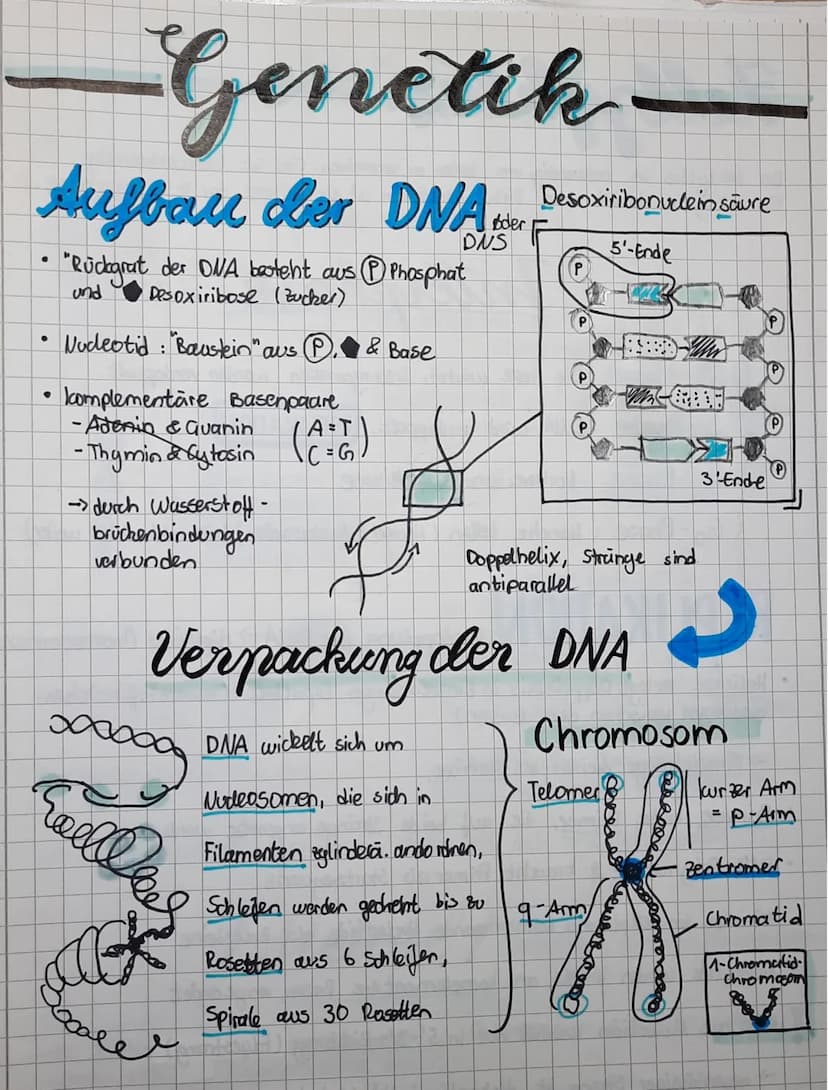 Genetik
Aufbau der DNA
oder
DNS
Desoxiribonucleinsäure
• "Rückgrat der DNA besteht aus Ⓟ Phosphat
und ⬟ Desoxiribose (Zucker)
• Nucleotid : "Baustein" aus Ⓟ, ⬟ & Base
• komplementäre Basenpaare
- Adenin & Guanin
- Thymin & Cytosin
(A = T
C = G)
→ durch Wasserstoff-
brückenbindungen
verbunden
5'-Ende
P
P
P
P
P
P
P
P
3'-Ende
Doppelhelix, Stränge sind
antiparallel
Verpackung der DNA
DNA wickelt sich um
Nucleosomen, die sich in
Filamenten zylinderä. andordnen,
Schleifen werden gedreht bis zu
Rosetten aus 6 Schleifen,
Spirale aus 30 Rosetten
Chromosom
Telomer
kurzer Arm
= p-Arm
Zentromer
q-Arm
Chromatid
1-Chromatid-
Chromosom